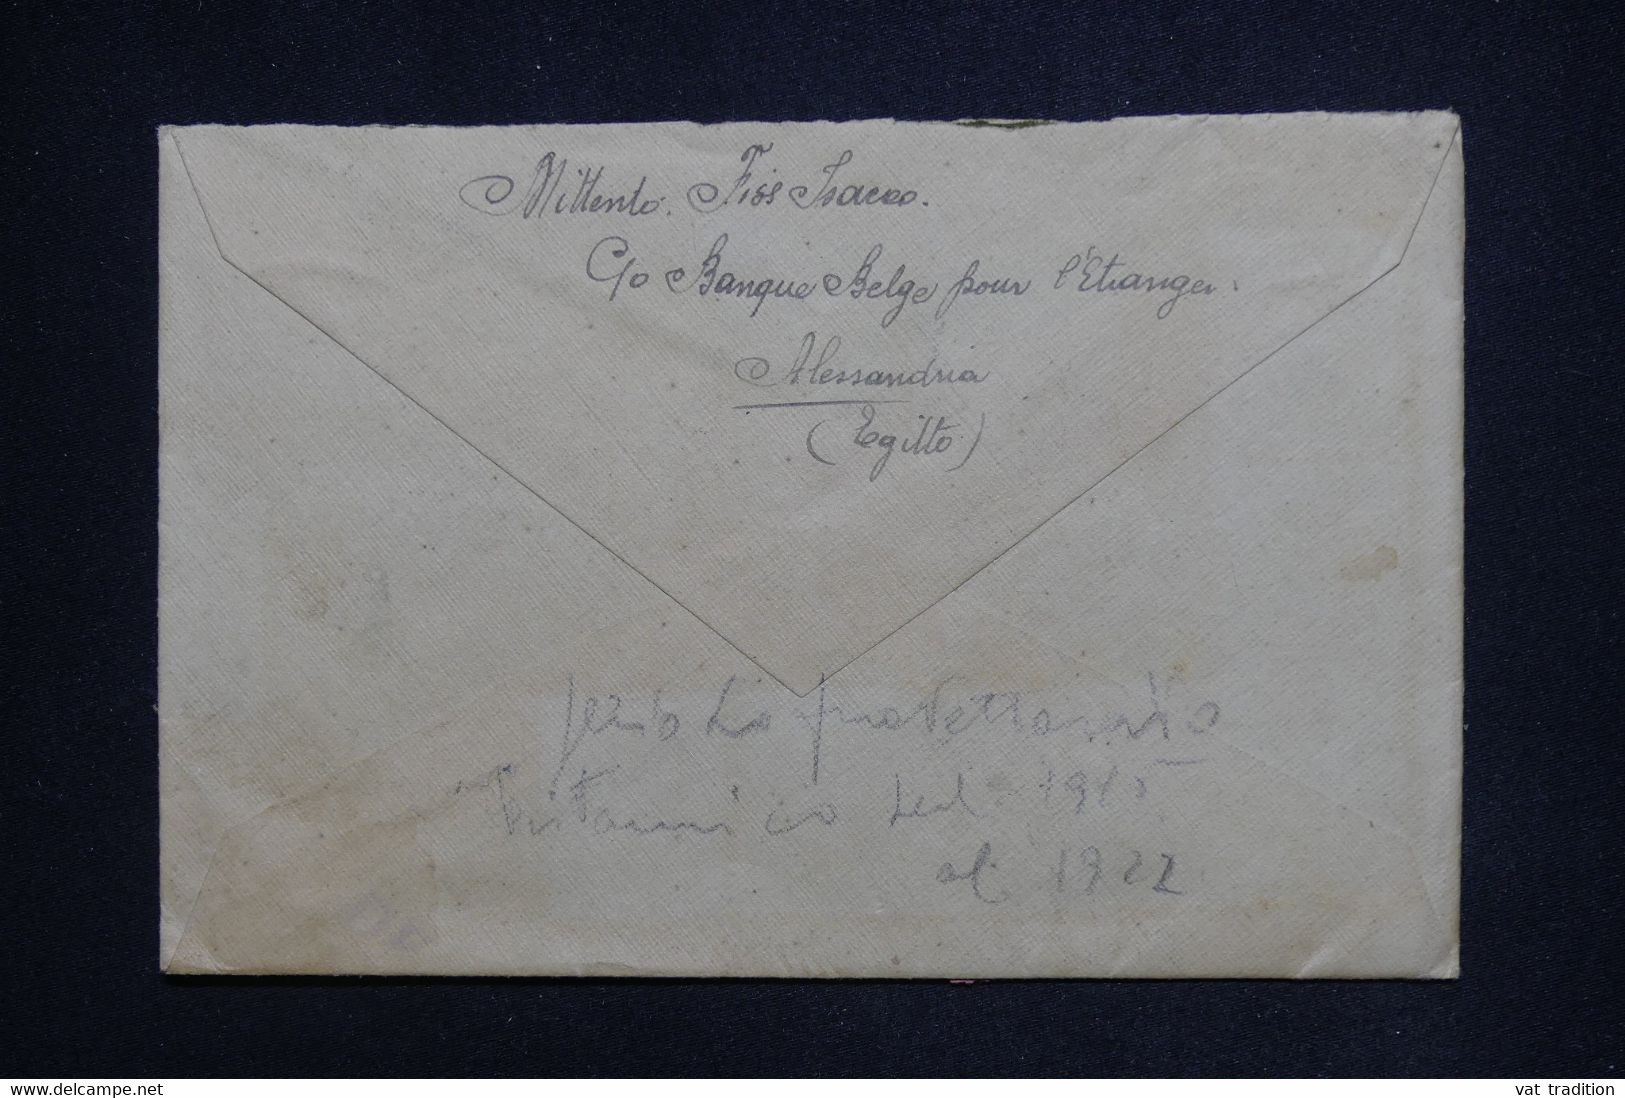 Mittente. Fiss Isacco.
C/o Banque Belge pour l'Etranger.
Alessandria
(Egitto)
periodo
Britannico del 1915
al 1922
www.delcampe.net
vat tradition